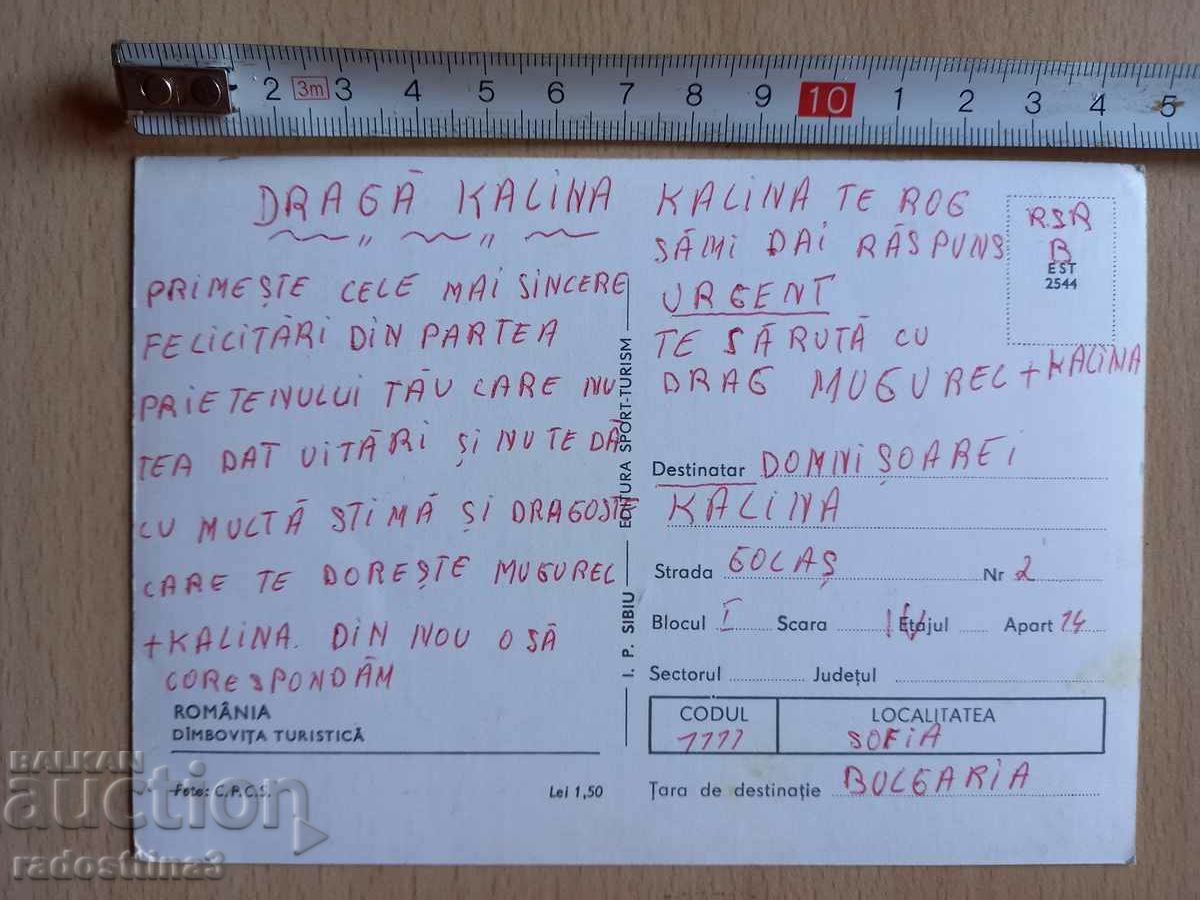 2 3m 3 4 5 6 7 8 9 10 1 2 3 4 5
DRAGĂ KALINA
PRIMEȘTE CELE MAI SINCERE
FELICITĂRI DIN PARTEA
PRIETENULUI TĂU CARE NU
TEA DAT UITĂRI ȘI NU TE DĂ
CU MULTĂ STIMĂ ȘI DRAGOSTE
CARE TE DOREȘTE MUGUREL
+KALINA. DIN NOU O SĂ
CORESPONDĂM
ROMÂNIA
DÎMBOVIȚA TURISTICĂ
Foto: C.P.C.S.
Lei 1,50
I. P. SIBIU — EDITURA SPORT-TURISM
KALINA TE ROG
SĂMI DAI RĂSPUNS
URGENT
TE SĂRUTĂ CU
DRAG MUGUREL + KALINA
RSR
B
EST
2544
Destinatar DOMNIȘOAREI
KALINA
Strada GOLAȘ Nr 2
Blocul I Scara Etajul Apart 14
Sectorul Județul
CODUL LOCALITATEA
1111 SOFIA
Țara de destinație BULGARIA
BALKAN
auction
radosttina3